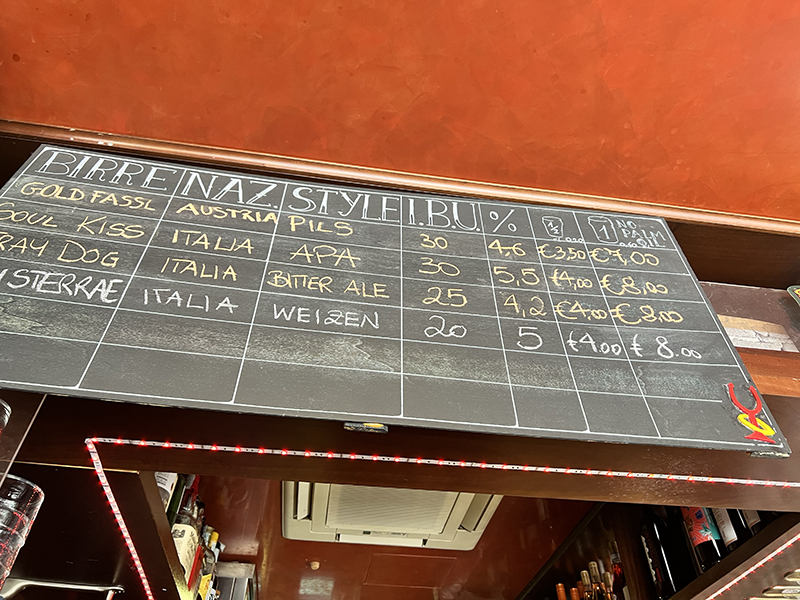 BIRRE NAZ. STYLE I.B.U. % ½ 1 NO PALM OIL
GOLD FASSL AUSTRIA PILS 30 4,6 €3,50 €7,00
SOUL KISS ITALIA APA 30 5,5 €4,00 €8,00
RAY DOG ITALIA BITTER ALE 25 4,2 €4,00 €8,00
STERRAE ITALIA WEIZEN 20 5 €4,00 €8,00